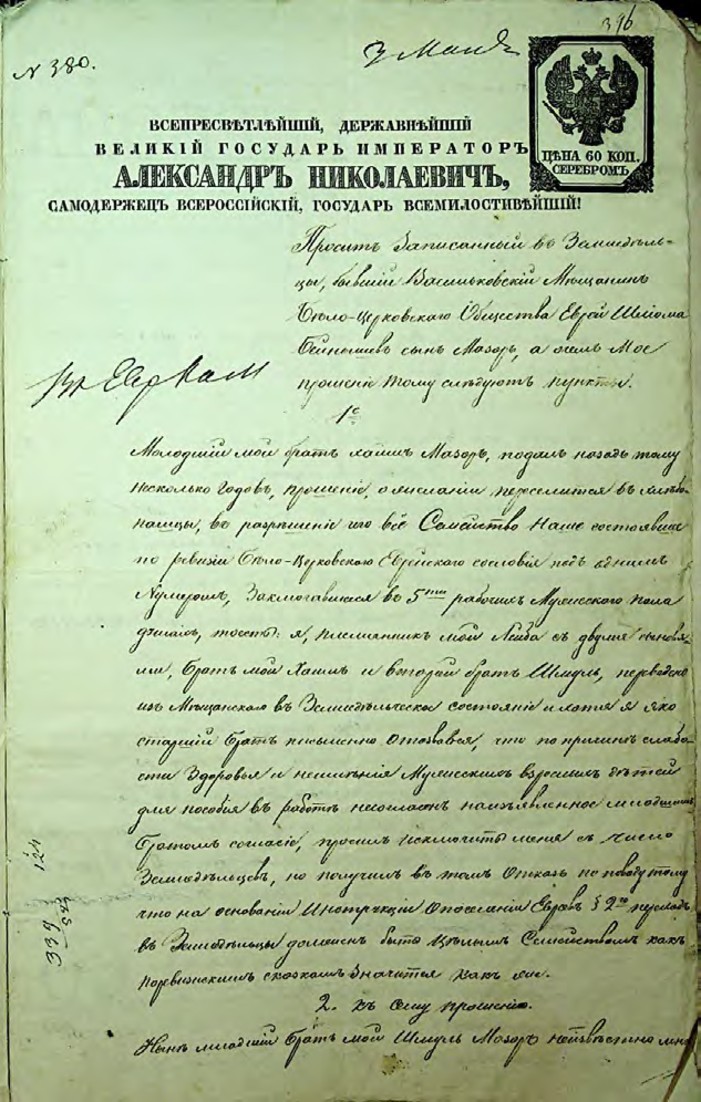 396
N 380.
3 Мая
ЦѢНА 60 КОП.
СЕРЕБРОМЪ
ВСЕПРЕСВѢТЛѢЙШІЙ, ДЕРЖАВНѢЙШІЙ
ВЕЛИКІЙ ГОСУДАРЬ ИМПЕРАТОРЪ
АЛЕКСАНДРЪ НИКОЛАЕВИЧЪ,
САМОДЕРЖЕЦЪ ВСЕРОССІЙСКІЙ, ГОСУДАРЬ ВСЕМИЛОСТИВѢЙШІЙ!
Проситъ Записанный въ Земледѣль-
цы, бывшій Васильковскій Мѣщанинъ
Бѣло-Церковскаго Общества Еврей Шлiома
сынъ Мазоръ, а о чемъ Мое
прошеніе тому слѣдуютъ пункты.
1е
Молодшій мой братъ Хаимъ Мазоръ, подалъ назадъ тому
несколько годовъ, прошеніе, о желаніи переселится въ хлѣбо-
пашцы, въ разрѣшеніе чего всё Семейство Наше состоявше
по ревизіи Бѣло-Церковскаго Еврейского сословія подъ однимъ
Нумеромъ, Заключавшееся въ 5ти рабочихъ Мужескаго пола
душахъ, тоесть: я, племянникъ мой Лейба съ двумя сыновя-
ми, братъ мой Хаимъ и вторый братъ Шмуль, переведено
изъ Мѣщанского въ Земледѣльческое состояніе и хотя я яко
старшій братъ письменно Отозвался, что по причинѣ слабо-
сти Здоровья и неимѣнія Мужескихъ взрослыхъ дѣтей
для пособія въ работѣ несогласенъ на изъявленное младшимъ
братомъ согласіе, просилъ исключить меня съ число
Земледѣльцевъ, но получилъ въ томъ отказъ по поводу тому
что на основаніи Инструкціи О поселеніи Евреевъ § 2го
въ Земледѣльцы долженъ быть Цѣлымъ Семействомъ какъ
по ревизскимъ сказкамъ Значится
2. къ сему прошенію.
Нынѣ младшій братъ мой Шмуль Мазоръ неизвѣстно мнѣ
339
124